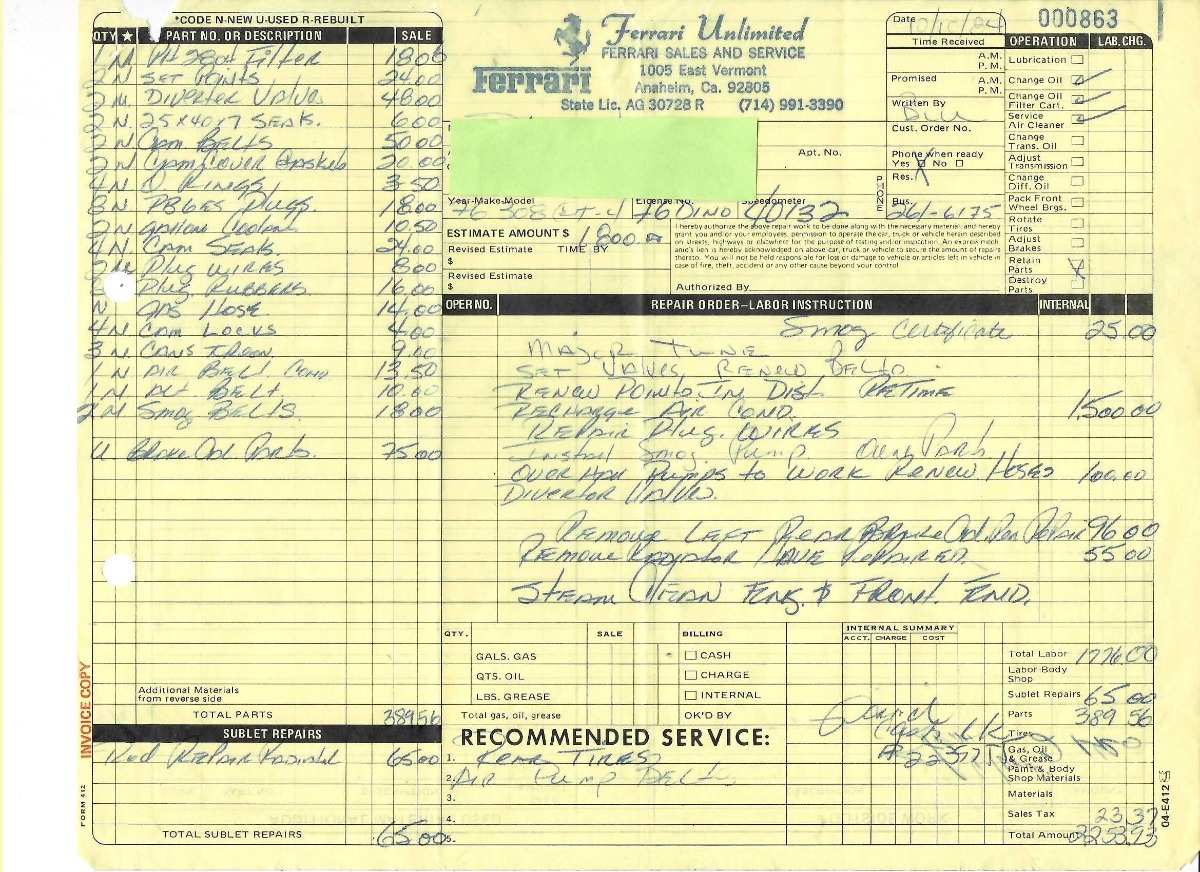 *CODE N-NEW U-USED R-REBUILT
QTY ★ PART NO. OR DESCRIPTION SALE
1 N Filter 18 06
2 N SET POINTS 24.00
2 N. DIVERTER VALVE 48.00
2 N 25X40X7 SEALS. 6.00
2 N CAM BELTS 50.00
2 N CAM COVER GASKETS 20.00
4 N O. RINGS 3.50
8 N PB6ES PLUGS 18.00
2 N COOLANT 10.50
4 N CAM SEALS. 24.00
PLUG WIRES 8 00
PLUG RUBBERS 16.00
N GAS HOSE. 14.00
4 N CAM LOCKS 4.00
3 N. 9.00
1 N AIR BELT COND 13.50
1 N ALT BELT 10.00
2 N SMOG BELTS. 18 00
U. BRAKE CAL PARTS. 75 00
Additional Materials
from reverse side
TOTAL PARTS 389 56
SUBLET REPAIRS
REPAIR 65 00
TOTAL SUBLET REPAIRS 65 00
INVOICE COPY
FORM 412
Ferrari
Ferrari Unlimited
FERRARI SALES AND SERVICE
1005 East Vermont
Anaheim, Ca. 92805
State Lic. AG 30728 R (714) 991-3390
Date 10/10/84
000863
Time Received
A.M.
P.M.
Promised A.M.
P.M.
Written By Bill
Cust. Order No.
Apt. No.
Phone when ready
Yes No
PHONE
Res.
Bus. 261-6175
Year-Make-Model License No. Speedometer
76 308 GT-4 76 DINO 40132
ESTIMATE AMOUNT $ 1800.00
Revised Estimate TIME BY
$
Revised Estimate
$
I hereby authorize the above repair work to be done along with the necessary material, and hereby
grant you and/or your employees, permission to operate the car, truck or vehicle herein described
on streets, highways or elsewhere for the purpose of testing and/or inspection. An express mech-
anic's lien is hereby acknowledged on above car, truck or vehicle to secure the amount of repairs
thereto. You will not be held responsible for loss or damage to vehicle or articles left in vehicle in
case of fire, theft, accident or any other cause beyond your control.
Authorized By
OPERATION LAB. CHG.
Lubrication
Change Oil
Change Oil
Filter Cart.
Service
Air Cleaner
Change
Trans. Oil
Adjust
Transmission
Change
Diff. Oil
Pack Front
Wheel Brgs.
Rotate
Tires
Adjust
Brakes
Retain
Parts
Destroy
Parts
OPER NO. REPAIR ORDER–LABOR INSTRUCTION INTERNAL
SMOG CERTIFICATE 25.00
MAJOR TUNE
SET VALVES, RENEW BELTS.
RENEW POINTS IN DIST. RETIME
RECHARGE AIR COND. 1500.00
REPAIR PLUG. WIRES
INSTALL SMOG. PUMP OWN PARTS
OVER HAUL PUMPS TO WORK RENEW HOSES 100.00
DIVERTOR VALVES.
REMOVE LEFT REAR BRAKE CAL REPAIR 96 00
REMOVE RADIATOR HAVE REPAIRED. 55 00
STEAM CLEAN ENG. & FRONT. END.
QTY. SALE BILLING
GALS. GAS CASH
QTS. OIL CHARGE
LBS. GREASE INTERNAL
Total gas, oil, grease OK'D BY
INTERNAL SUMMARY
ACCT. CHARGE COST
Paid
RECOMMENDED SERVICE:
1. REAR TIRES
2. AIR PUMP BELTS
3.
4.
5.
Total Labor 1776.00
Labor-Body
Shop
Sublet Repairs 65 00
Parts 389 56
Tires
Gas, Oil
& Grease
Paint & Body
Shop Materials
Materials
Sales Tax 23.37
Total Amount 2253.93
04-E412